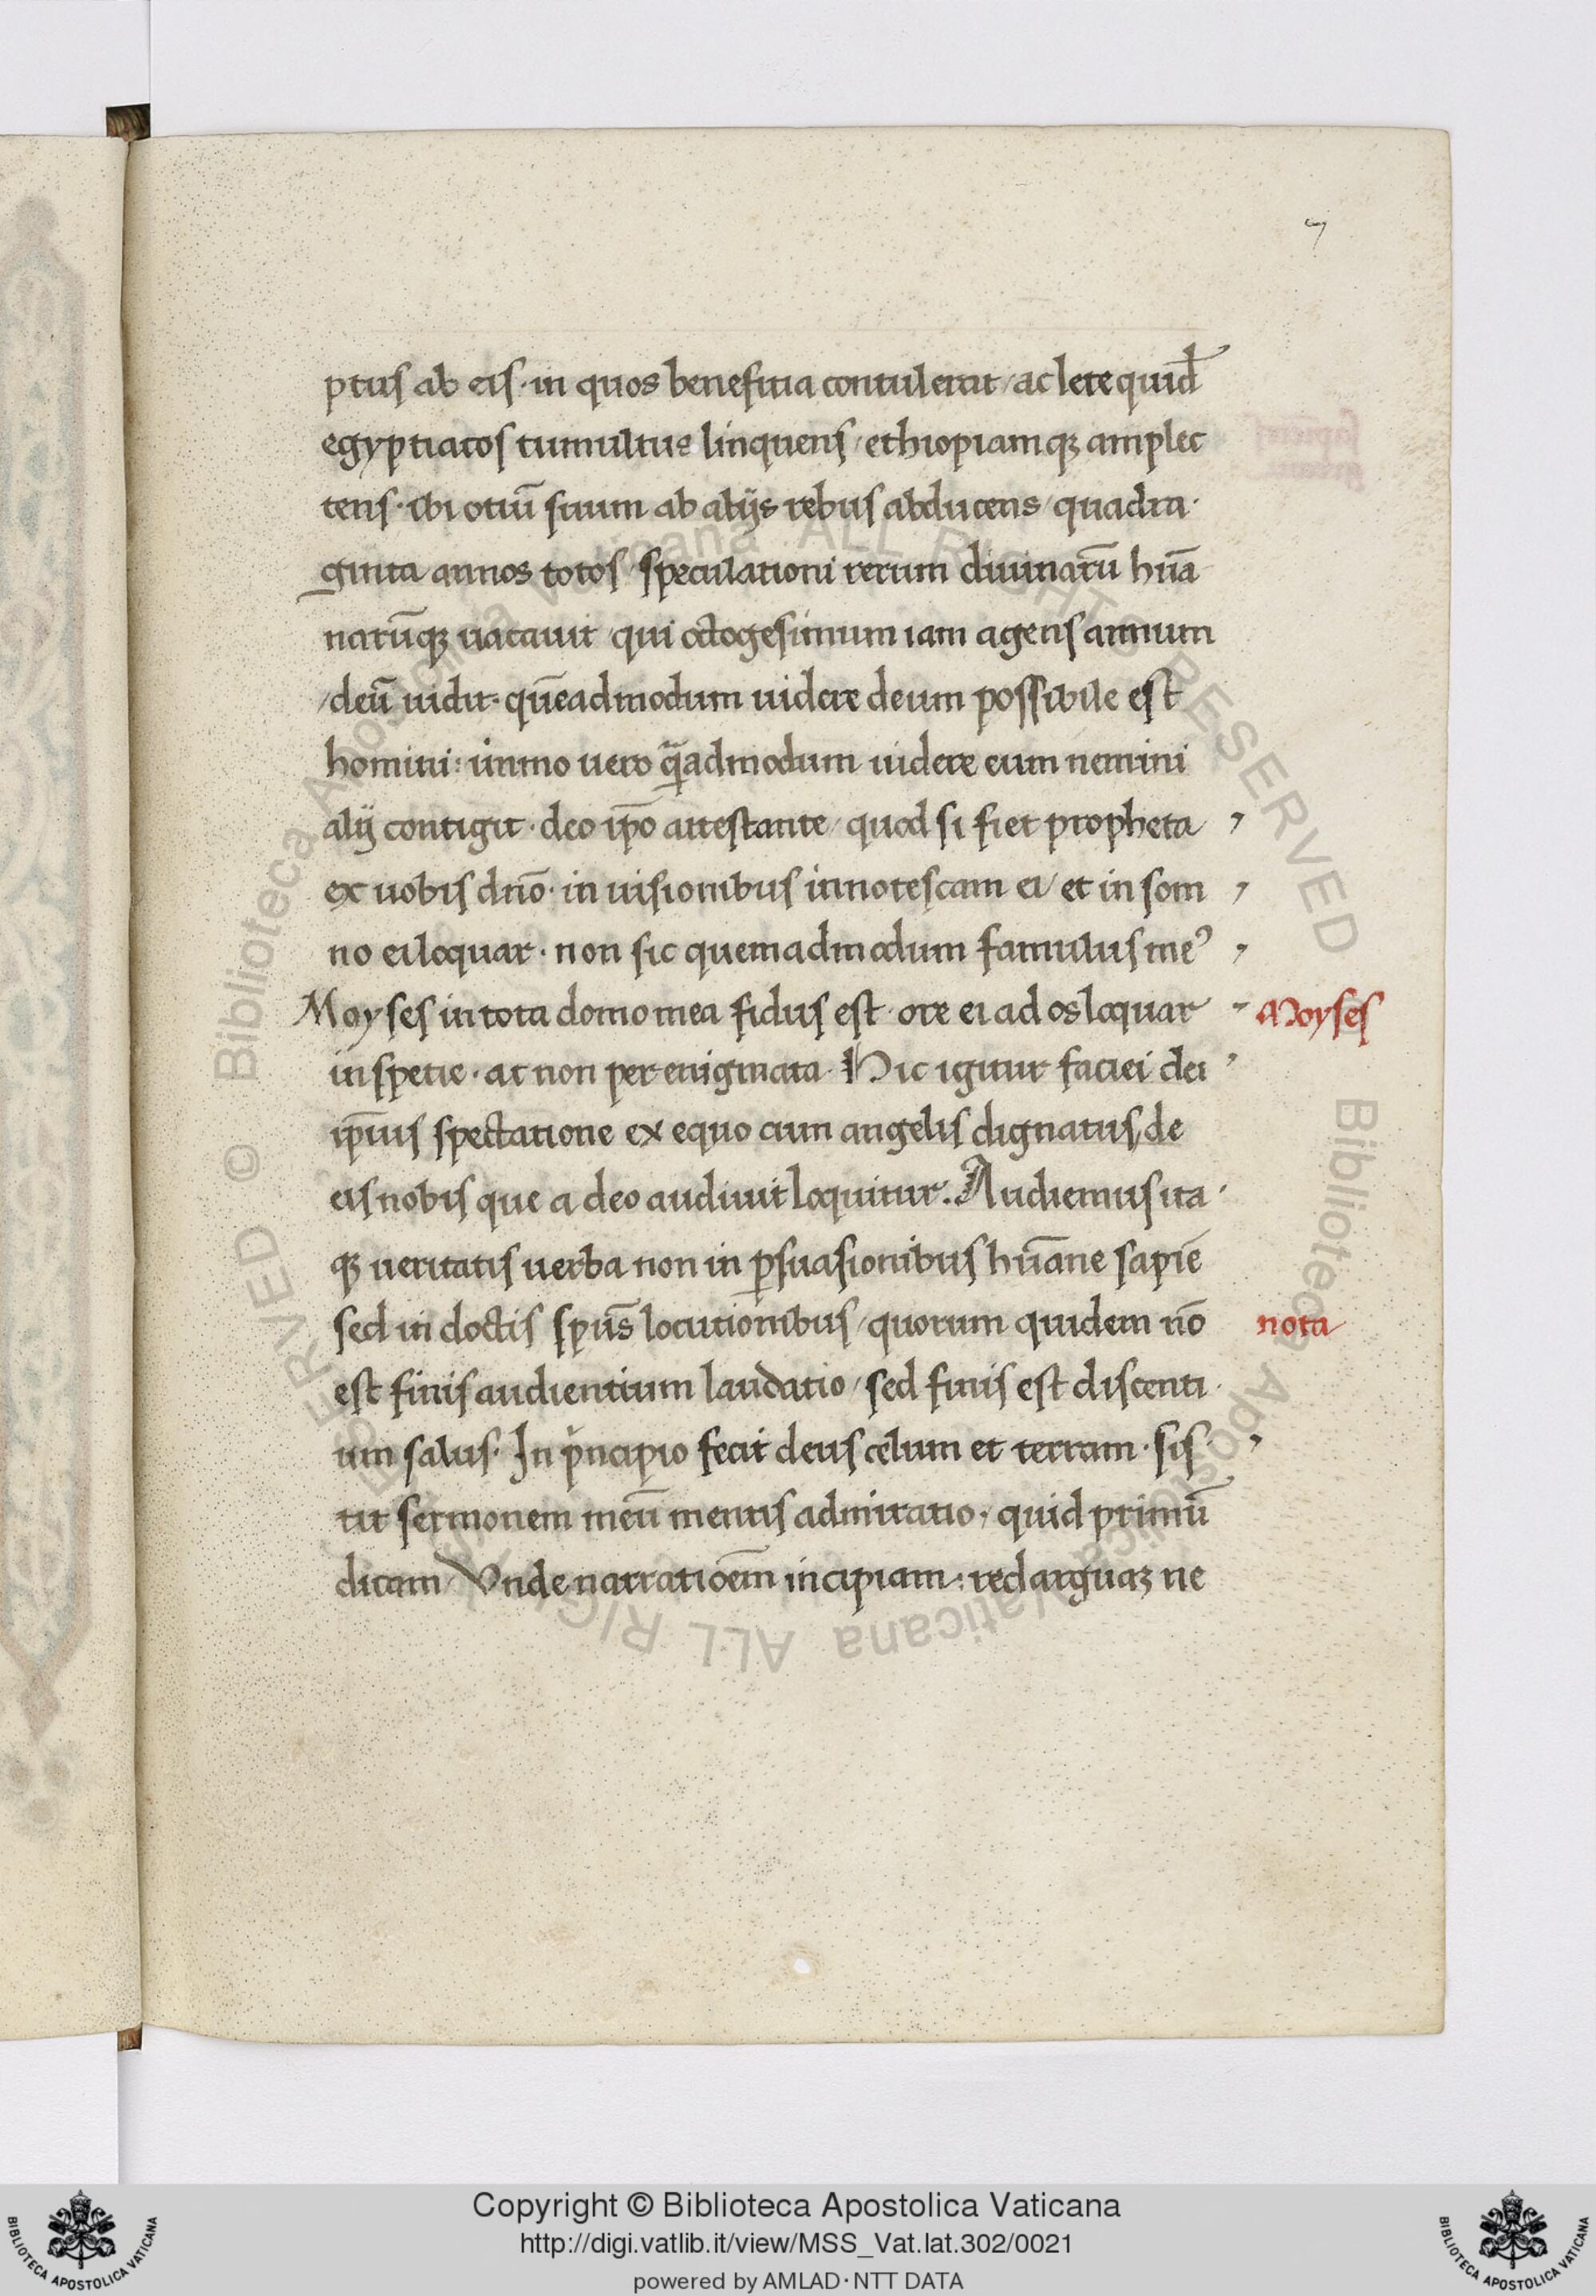 7
ptus ab eis · in quos benefitia contulerat / ac lete quid̄
egyptiacos tumultus linquens / ethiopiamqꝫ amplec
tens · ibi otiū suum ab alijs rebus abducens / quadra ·
ginta annos totos / speculationi rerum diuinarū hūa
narūqꝫ uacauit / qui octogesimum iam agens annum
/ deū uidit · quēadmodum uidere deum possibile est
homini : immo uero quādmodum uidere eum nemini
alij contigit · deo ip̄o attestante / quod si fiet propheta
ex uobis dn̄o · in uisionibus innotescam ei / et in som
no ei loquar · non sic quemadmodum famulus meꝰ
Moyses in tota domo mea fidus est · ore ei ad os loquar
Moyses
in spetie · ac non per enigmata · Hic igitur faciei dei
ip̄ius spectatione ex equo cum angelis dignatus / de
eis nobis que a deo audiuit loquitur. Audiemus ita ·
qꝫ ueritatis uerba non in ꝑsuasionibus hūane sapiē
sed in doctis spūs locutionibus / quorum quidem nō
nota
est finis audientium laudatio / sed finis est discenti ·
um salus · In pͥncipio fecit deus celum et terram · sis ·
tit sermonem meū mentis admiratio · quid primū
dicam / Vnde narratiōem incipiam : redarguaꝫ ne
Copyright © Biblioteca Apostolica Vaticana
http://digi.vatlib.it/view/MSS_Vat.lat.302/0021
powered by AMLAD·NTT DATA
BIBLIOTECA APOSTOLICA VATICANA
BIBLIOTECA APOSTOLICA VATICANA